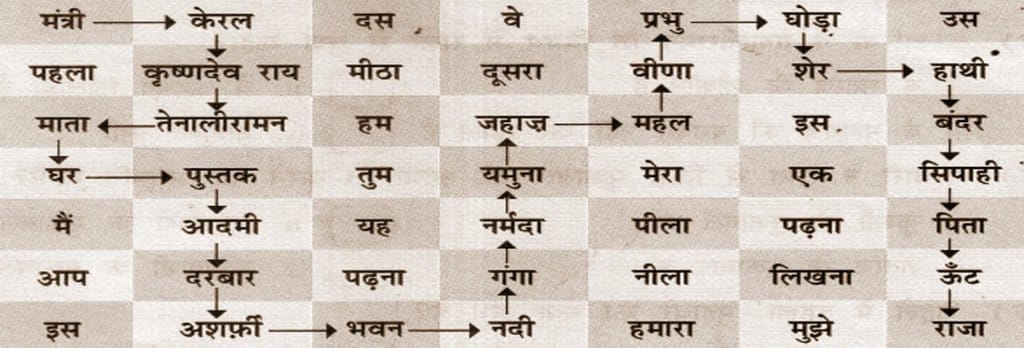 मंत्री केरल दस वे प्रभु घोड़ा उस
पहला कृष्णदेव राय मीठा दूसरा वीणा शेर हाथी
माता तेनालीरामन हम जहाज़ महल इस बंदर
घर पुस्तक तुम यमुना मेरा एक सिपाही
मैं आदमी यह नर्मदा पीला पढ़ना पिता
आप दरबार पढ़ना गंगा नीला लिखना ऊँट
इस अशर्फ़ी भवन नदी हमारा मुझे राजा